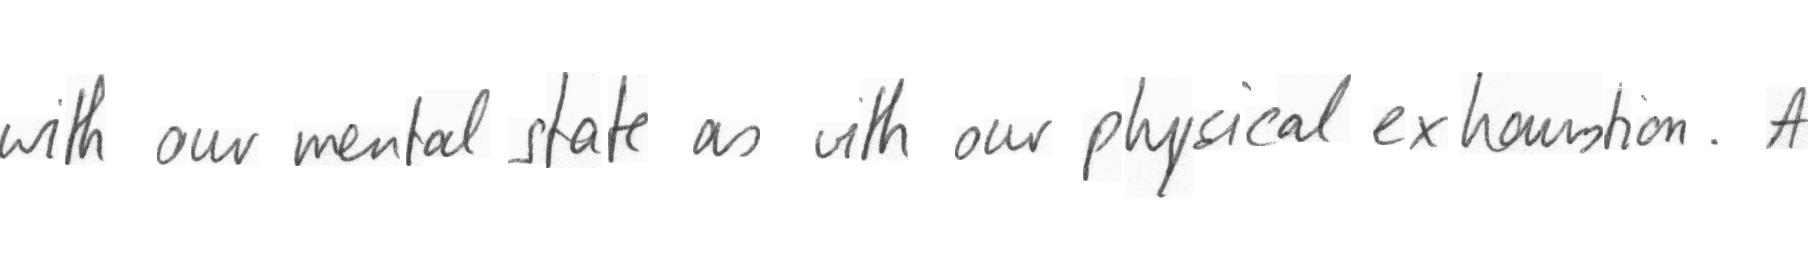 with our mental state as with our physical exhaustion. A